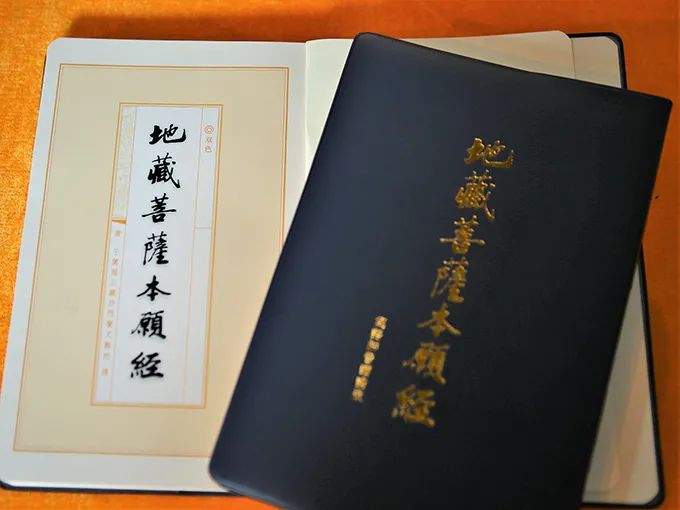 地藏菩薩本願經
◎双色
唐 于闐國三藏沙門實叉難陀 譯
地藏菩薩本願經